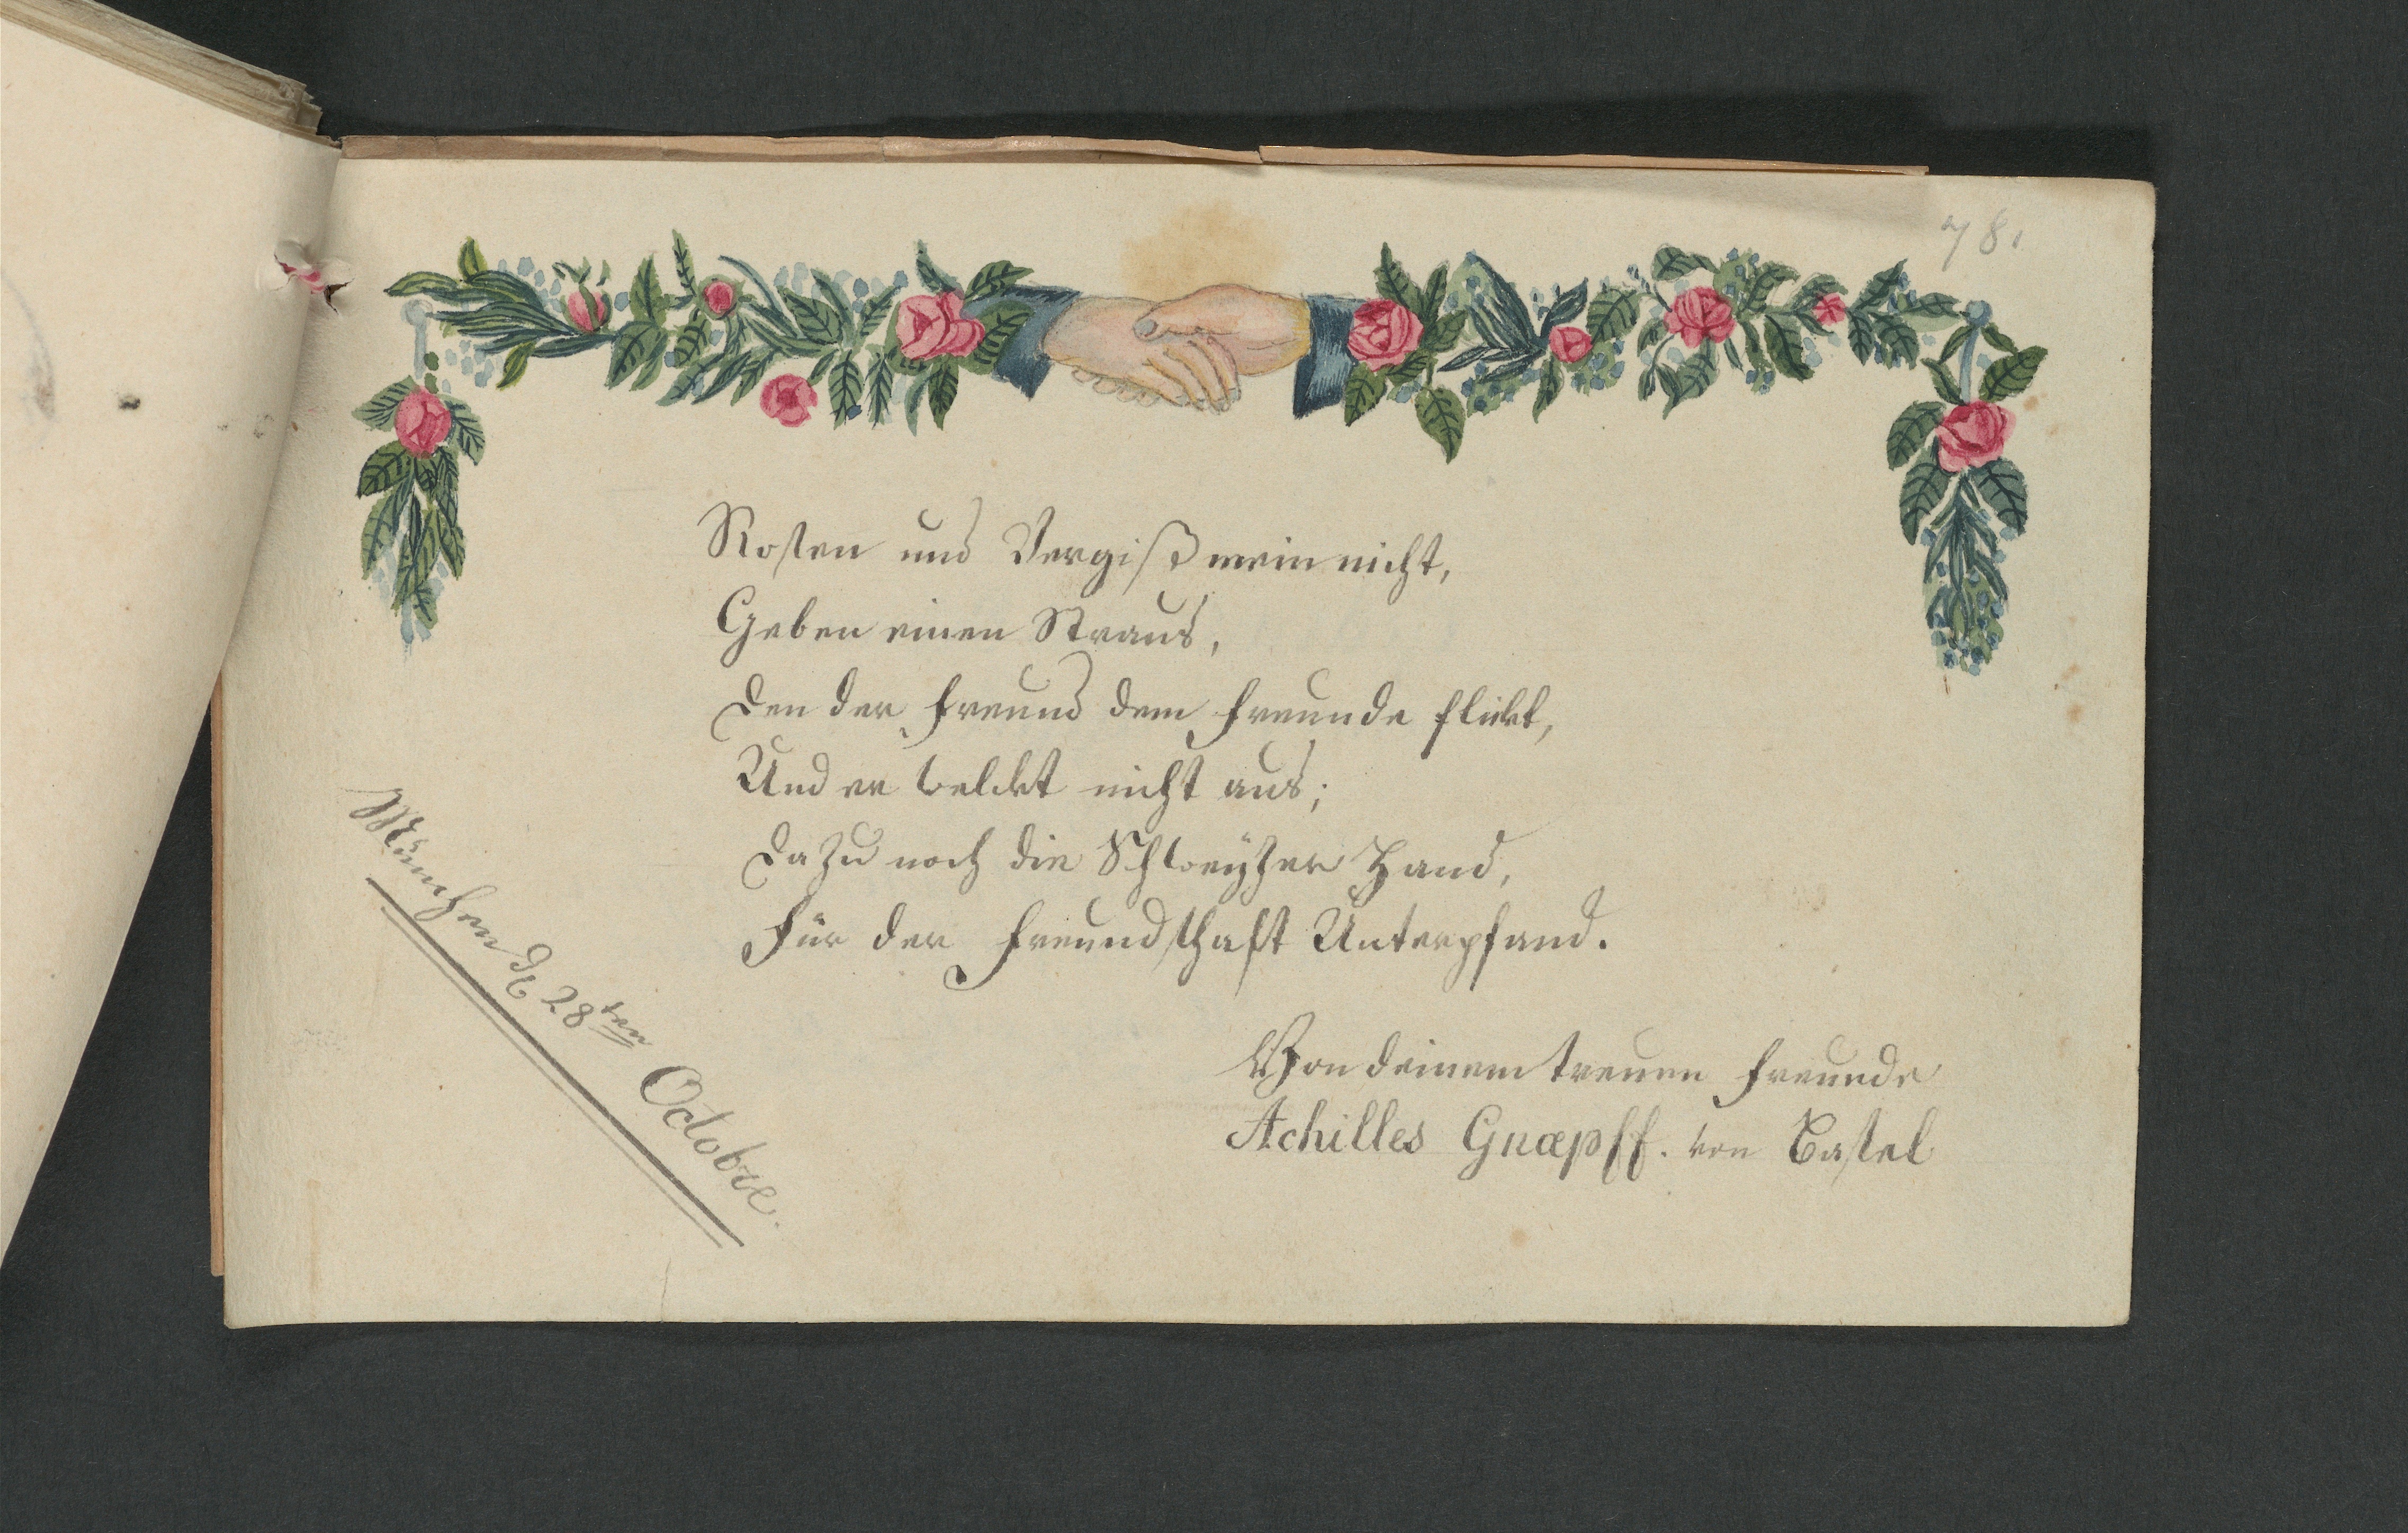 78.
Rosen und Vergißmeinnicht,
Geben einen Straus,
Den der Freund dem Freunde flickt,
Und er welckt nicht aus;
Dazu noch die Schweytzer Hand,
Für der Freundschaft Unterpfand.
München d. 28ten Octobre.
Von deinem treuen Freunde
Achilles Gnæpff. von Basel